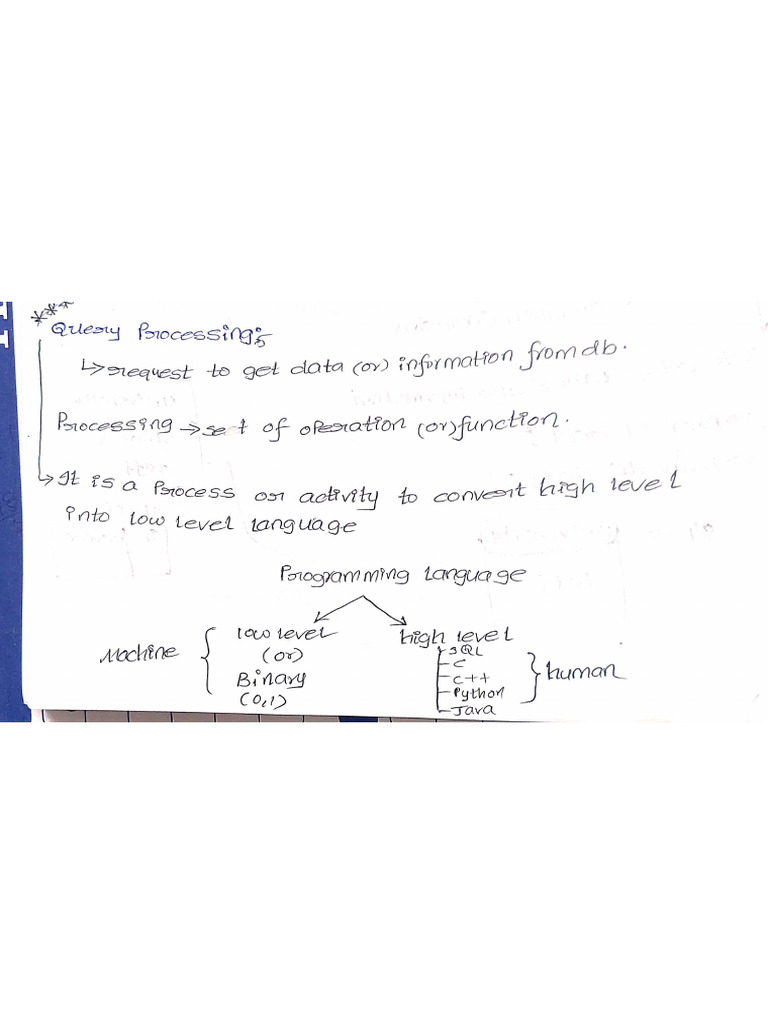 ***
Query Processing:-
↳ request to get data (or) information from db.
Processing → set of operation (or) function.
→ It is a Process or activity to convert high level
into low level language
Programming Language
Machine { low level (or) Binary (0,1)
high level
SQL
C
C++
Python
Java
} human